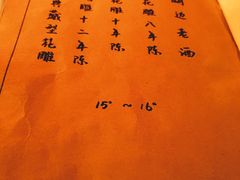 湖边老酒
花雕八年陈
花雕十年陈
花雕十二年陈
典藏型花雕
15° ~ 16°